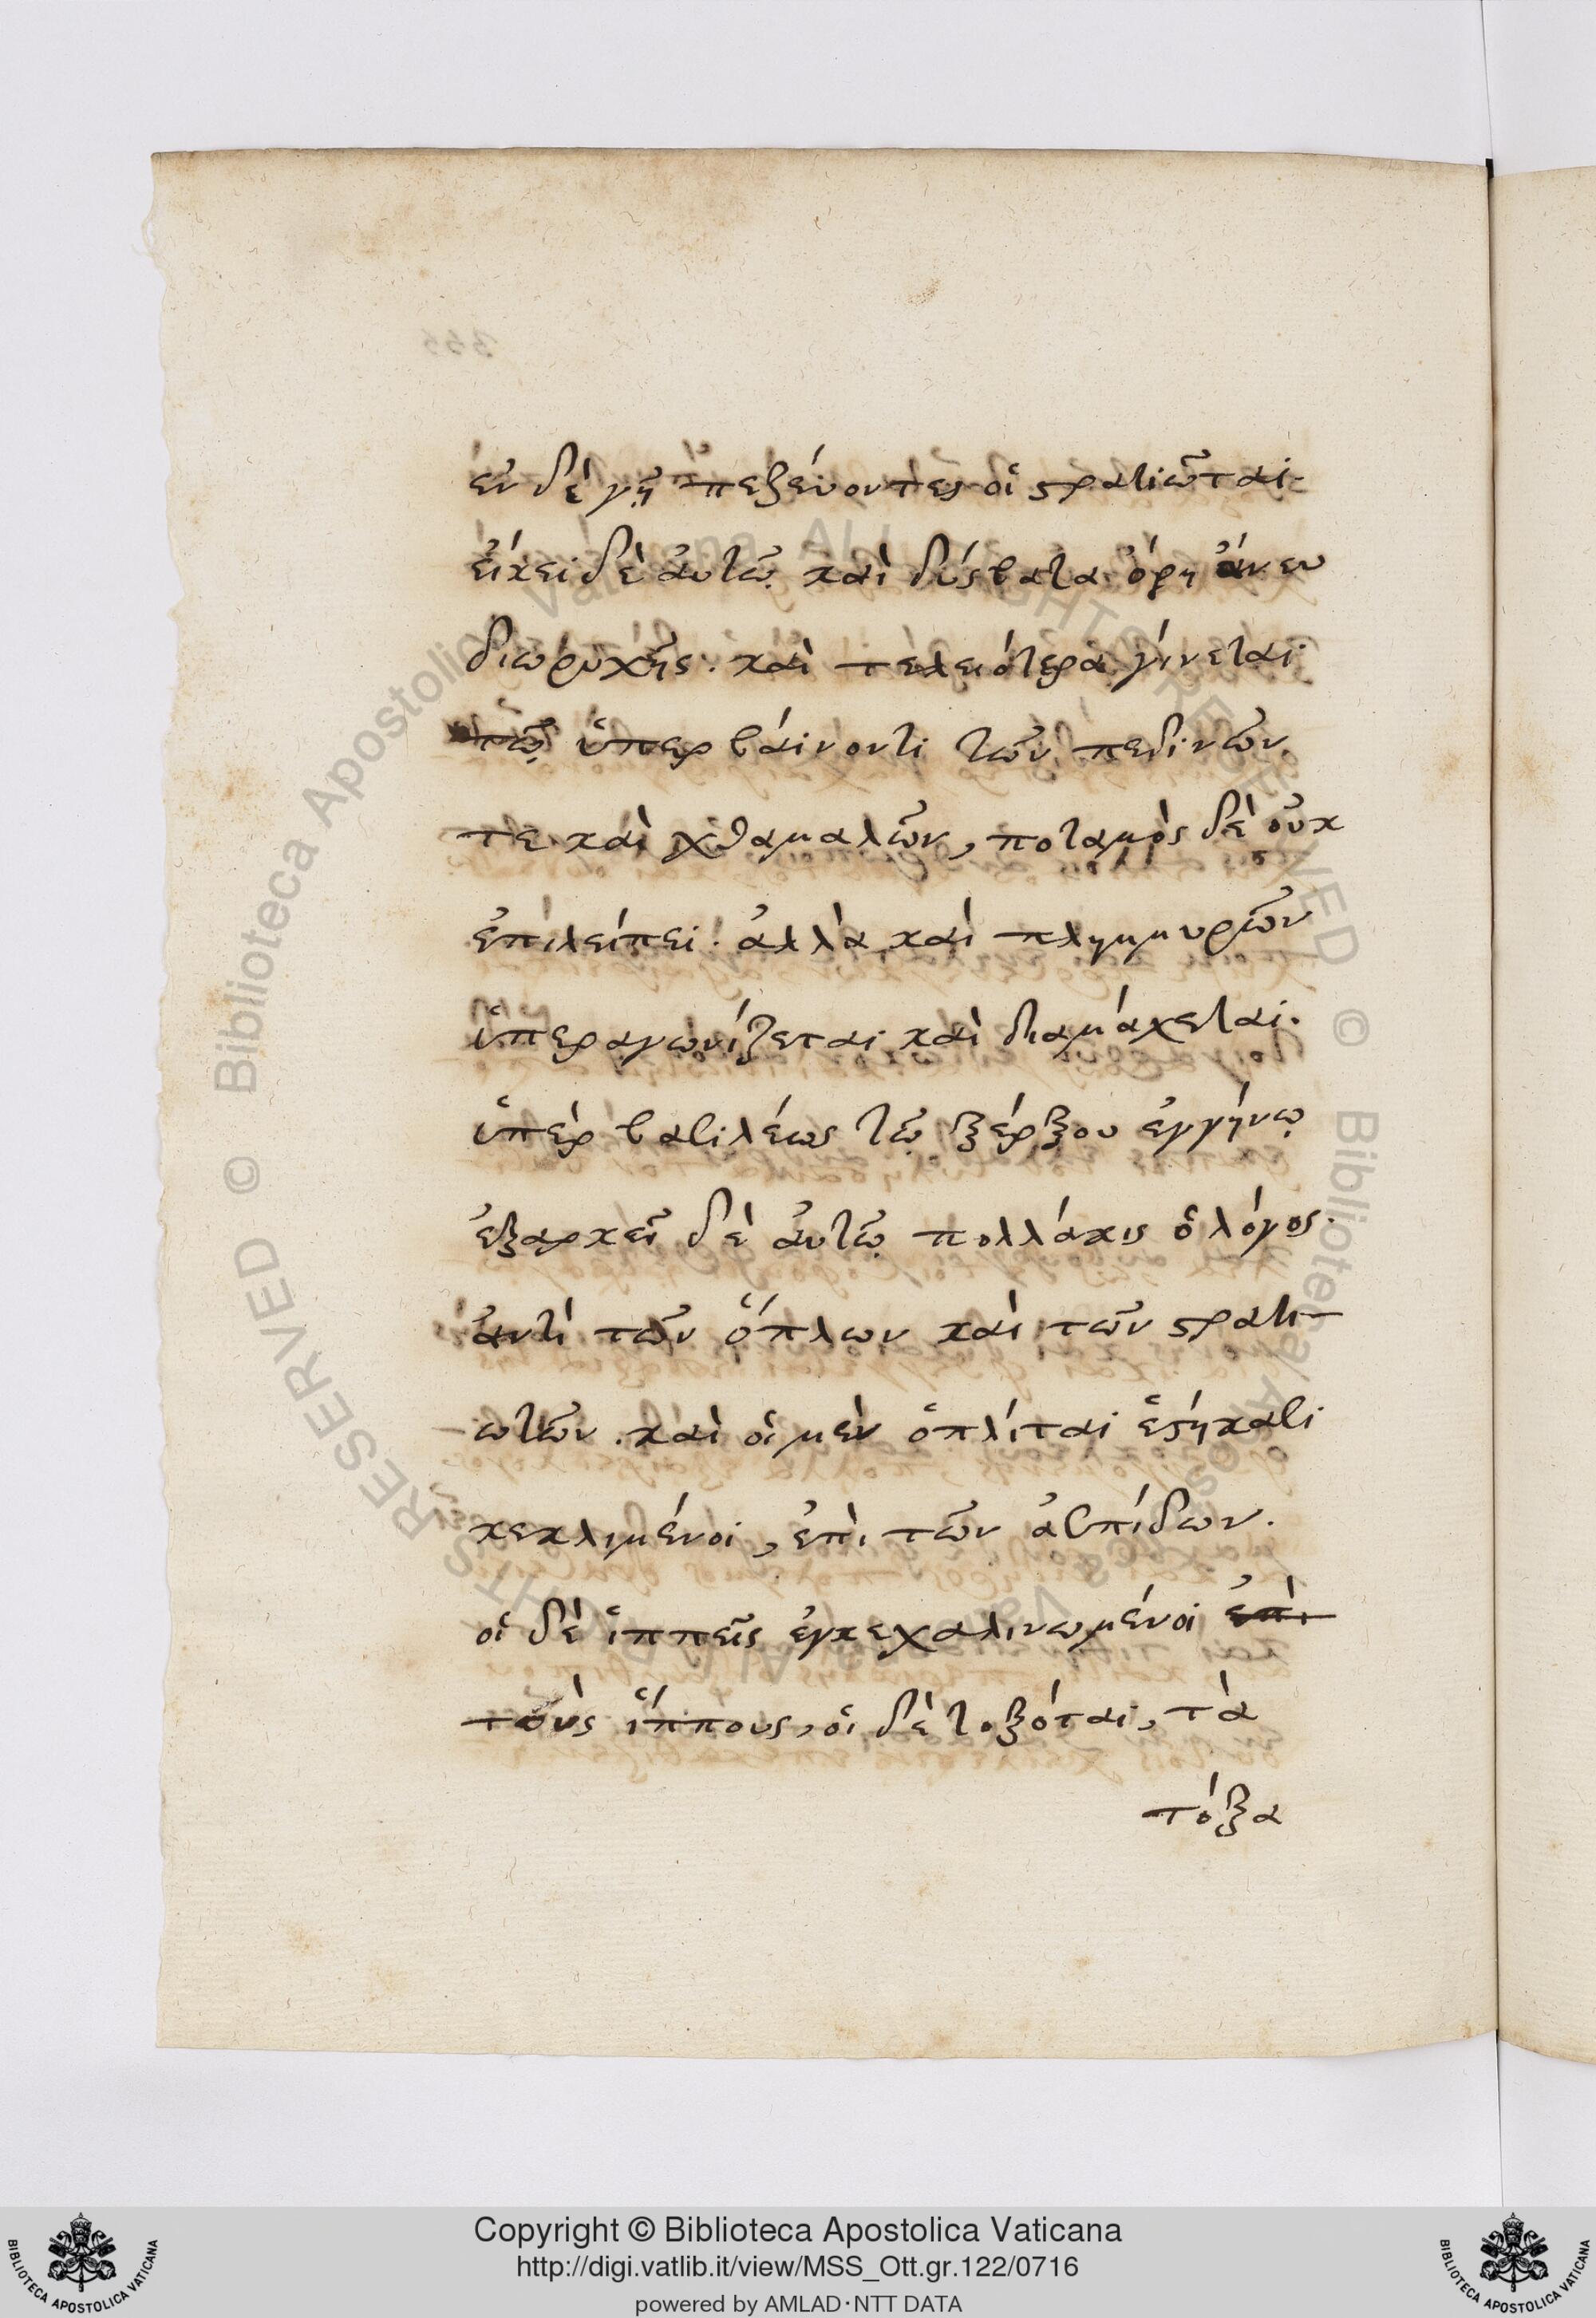 ἐν δὲ γῆ πεζεύοντες οἱ στρατιῶται.
εἴκει δὲ ἀυτῶ καὶ δύσβατα ὄρη ἄνευ
διωρυχῆς. καὶ τελειότερα γίνεται
τῶ ὑπερβαίνοντι τῶν πεδινῶν
τε καὶ χθαμαλῶν, ποταμὸς δὲ οὐκ
ἐπιλείπει. ἀλλὰ καὶ πλημμυρῶν
ὑπεραγωνίζεται καὶ διαμάχεται.
ὑπὲρ βασιλέως τῶ ξέρξου ἐγγήνω
ἐξαρκεῖ δὲ ἀυτῶ πολλάκις ὁ λόγος.
ἀντὶ τῶν ὅπλων καὶ τῶν στρατι-
-ωτῶν. καὶ οἱ μὲν ὁπλίται ἑστήκασι
κεκλιμένοι, ἐπὶ τῶν ἀσπίδων.
οἱ δὲ ἱππεῖς ἐγκεχαλινωμένοι ἐπὶ
τοὺς ἵππους, οἱ δὲ τοξόται, τὰ
τόξα
Copyright © Biblioteca Apostolica Vaticana
http://digi.vatlib.it/view/MSS_Ott.gr.122/0716
powered by AMLAD·NTT DATA